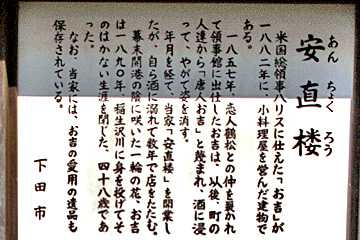 安直楼
あん ちょく ろう
米国総領事ハリスに仕えた「お吉」が
一八八二年に、小料理屋を営んだ建物で
ある。
一八五七年、恋人鶴松との仲を裂かれ
て領事館に出仕したお吉は、以後、町の
人達から「唐人お吉」と蔑まれ、酒に浸
って、やがて姿を消す。
年月を経て、当家「安直楼」を開業し
たが、自ら酒に溺れて数年で店をたたむ。
幕末開港の陰に咲いた一輪の花、お吉
は一八九〇年、稲生沢川に身を投げてそ
のはかない生涯を閉じた。四十八歳であ
った。
なお、当家には、お吉の愛用の遺品も
保存されている。
下田市